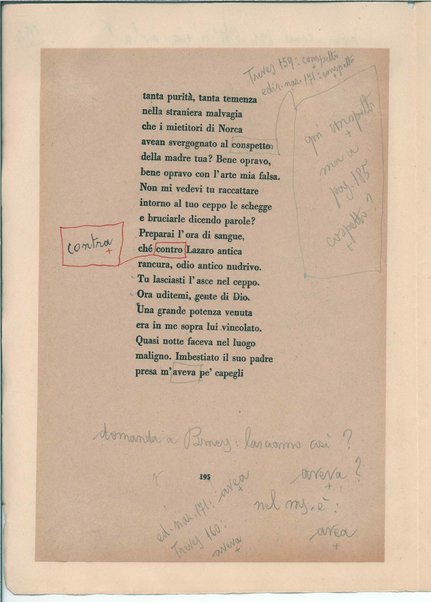 Treves 159: conspetto
ediz. naz. 171: conspetto
qui conspetto
ma a
pag. 185
cospetto?
tanta purità, tanta temenza
nella straniera malvagia
che i mietitori di Norca
avean svergognato al conspetto
della madre tua? Bene opravo,
bene opravo con l'arte mia falsa.
Non mi vedevi tu raccattare
intorno al tuo ceppo le schegge
e bruciarle dicendo parole?
Preparai l'ora di sangue,
contra
ché contro Lazaro antica
rancura, odio antico nudrivo.
Tu lasciasti l'asce nel ceppo.
Ora uditemi, gente di Dio.
Una grande potenza venuta
era in me sopra lui vincolato.
Quasi notte faceva nel luogo
maligno. Imbestiato il suo padre
presa m'aveva pe' capegli
domanda a : lasciamo così?
aveva?
nel ms. è:
avea
195
ed. naz. 171: avea
Treves 160:
aveva